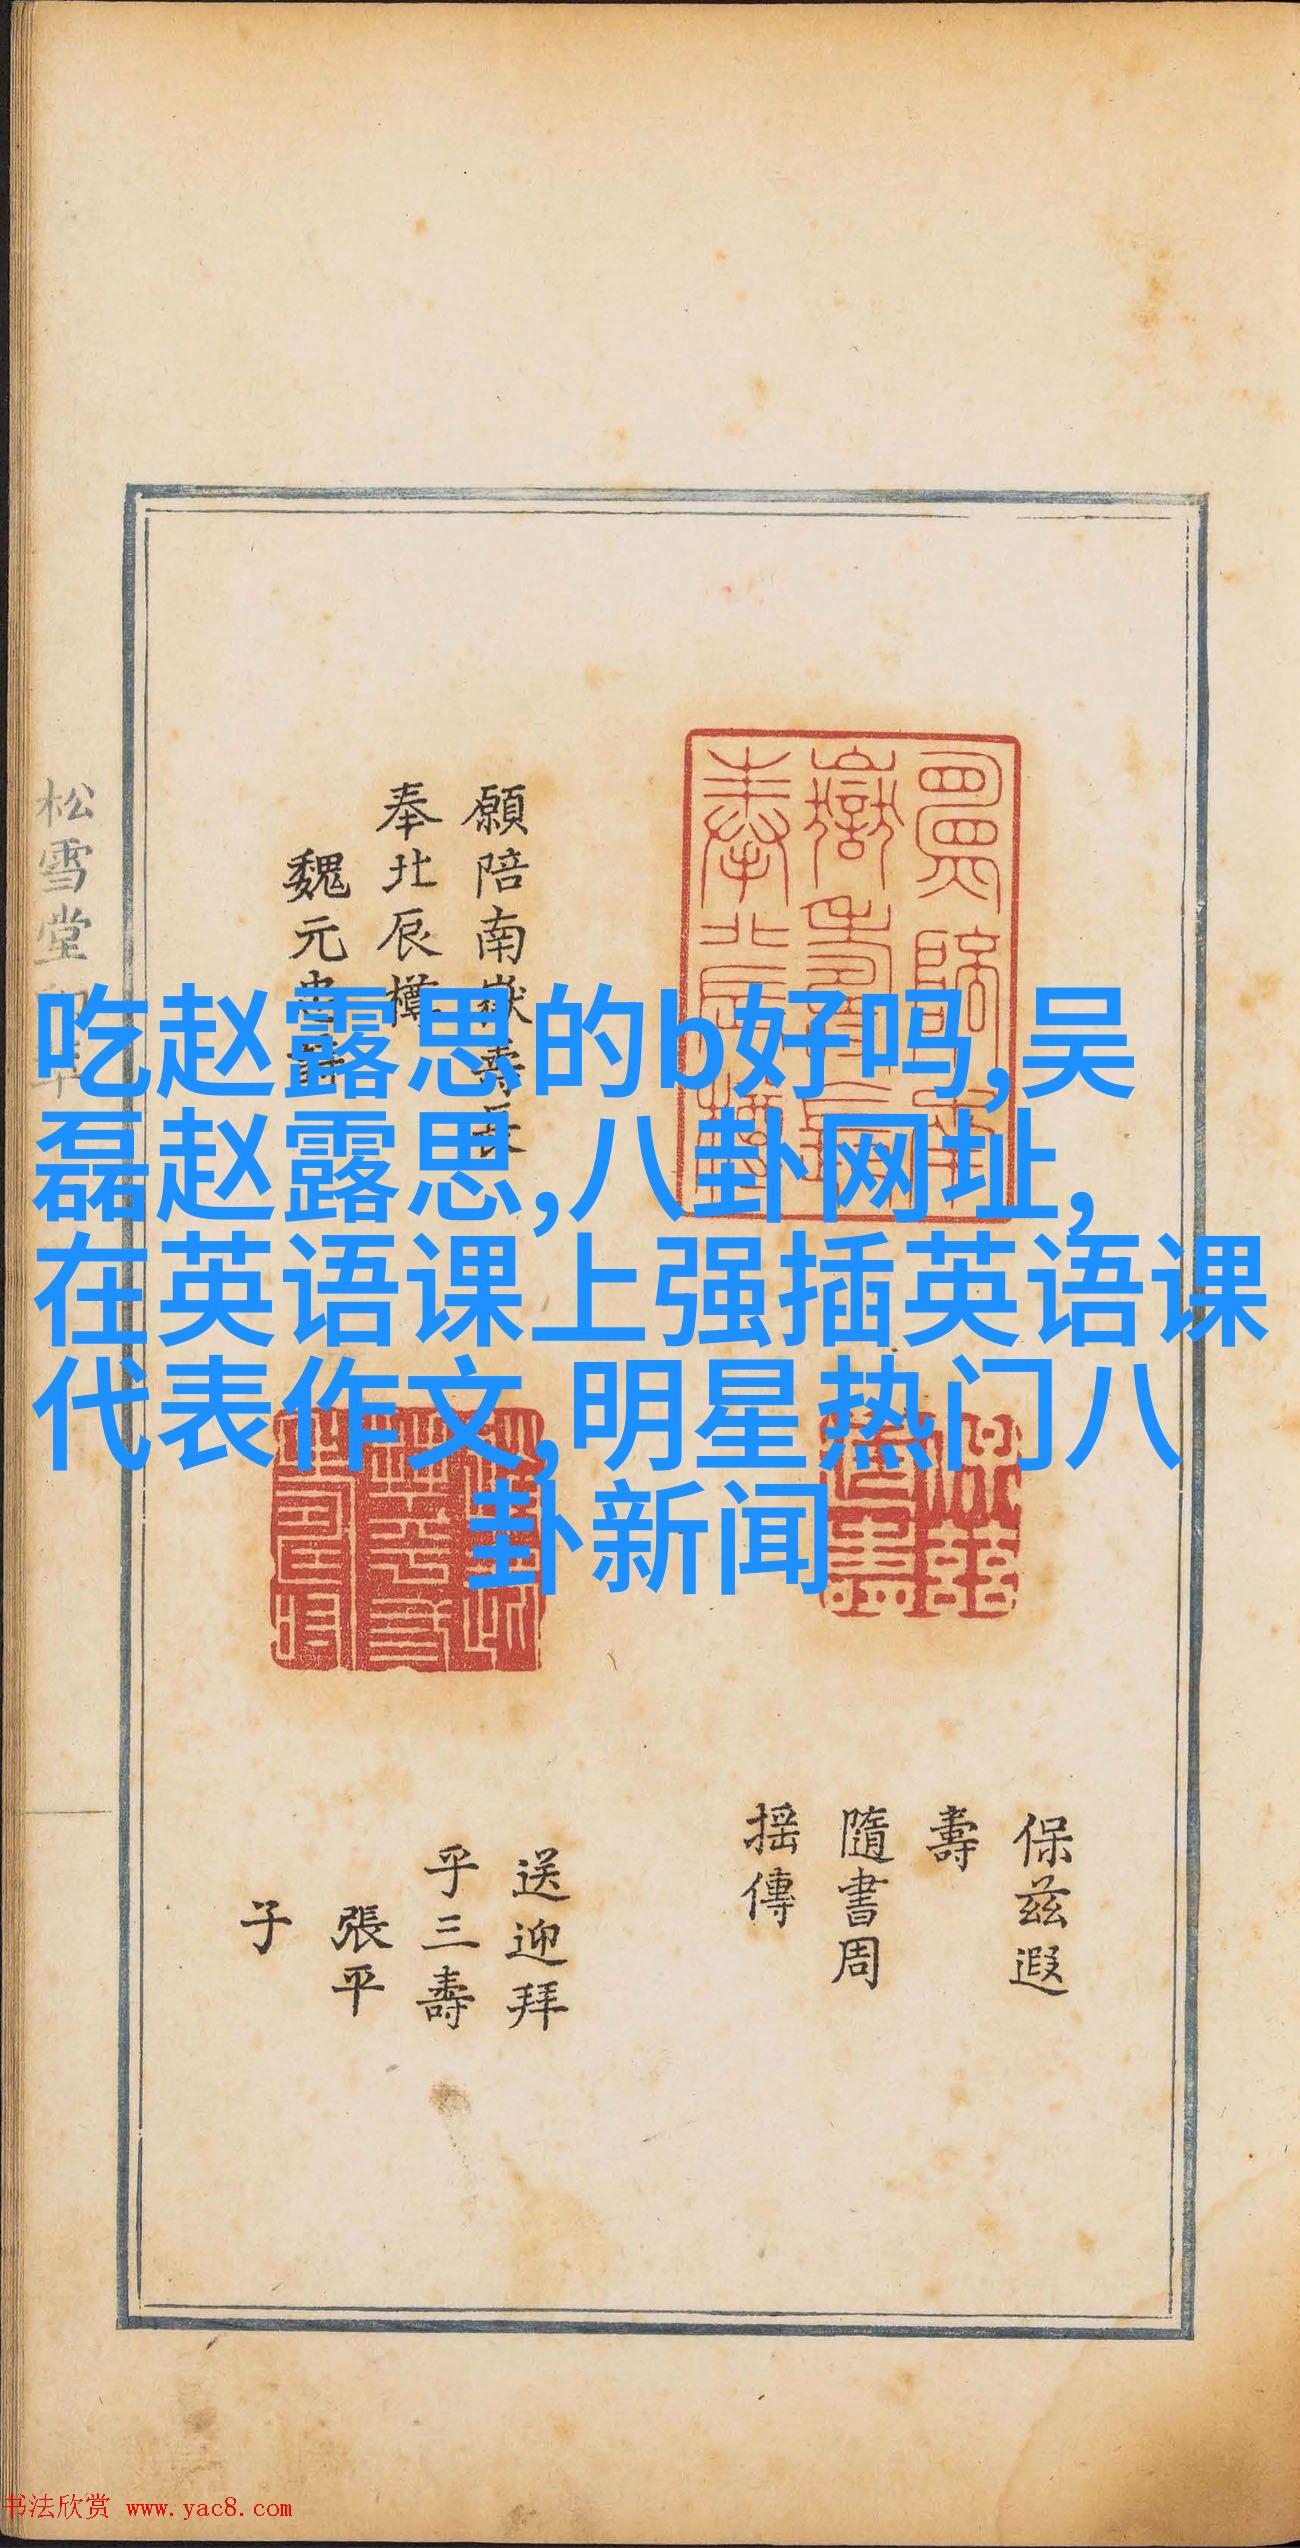 吃赵露思的b好吗,吴
磊赵露思,八卦网址,
在英语课上强插英语课
代表作文,明星热门八
卦新闻
願陪南嶽壽長
奉北辰樽
魏元忠詩
松雪堂印萃
保兹遐
壽
隨書周
摇傳
送迎拜
乎三壽
張平
子
书法欣赏 www.yac8.com